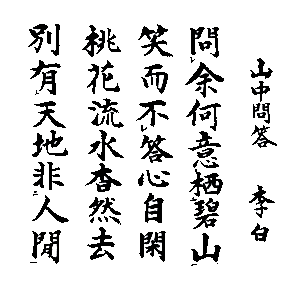 山中問答　李白
問余何意栖碧山
笑而不答心自閑
桃花流水杳然去
別有天地非人間